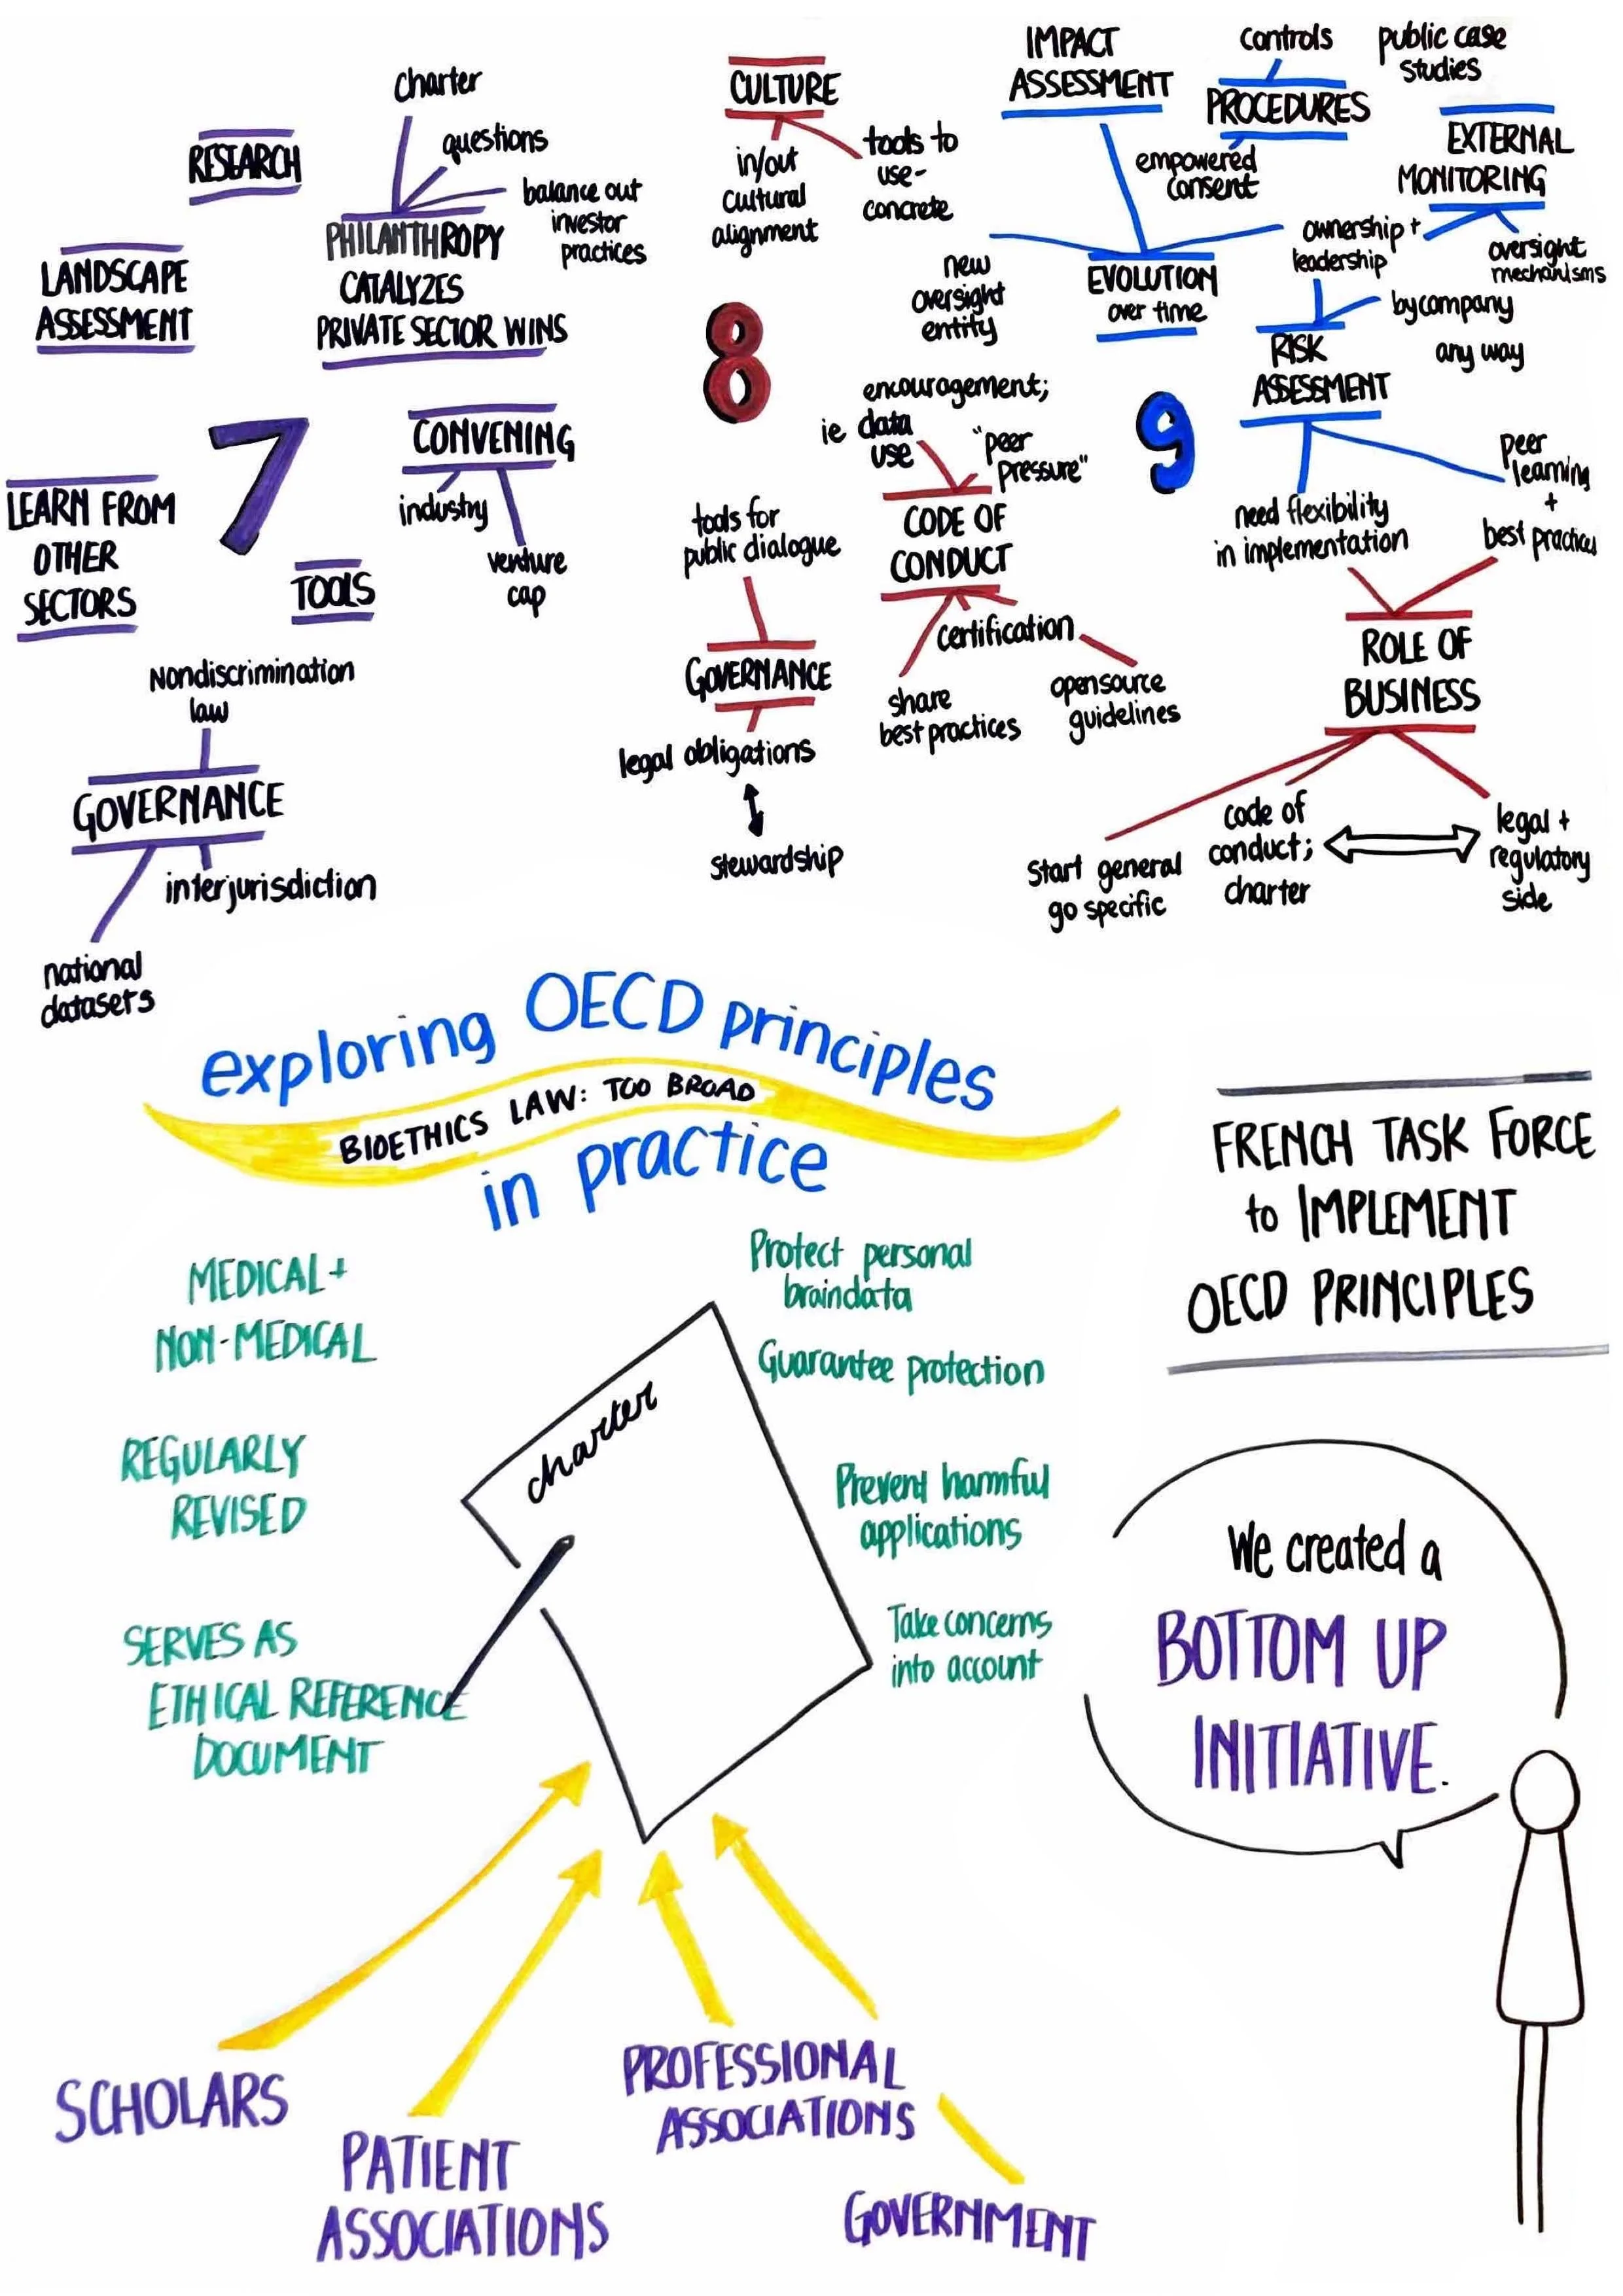 RESEARCH
charter
questions
balance out
investor
practices
PHILANTHROPY
CATALYZES
PRIVATE SECTOR WINS
LANDSCAPE
ASSESSMENT
7
CONVENING
industry
venture
cap
LEARN FROM
OTHER
SECTORS
TOOLS
Nondiscrimination
law
GOVERNANCE
interjurisdiction
national
datasets
CULTURE
in/out
cultural
alignment
tools to
use-
concrete
8
encouragement;
ie data
use
"peer
pressure"
CODE OF
CONDUCT
certification
share
best practices
open source
guidelines
tools for
public dialogue
GOVERNANCE
legal obligations
stewardship
IMPACT
ASSESSMENT
controls
PROCEDURES
empowered
consent
public case
studies
EXTERNAL
MONITORING
ownership +
leadership
oversight
mechanisms
new
oversight
entity
EVOLUTION
over time
by company
any way
RISK
ASSESSMENT
9
need flexibility
in implementation
peer
learning
+
best practices
ROLE OF
BUSINESS
Start general
go specific
code of
conduct;
charter
legal +
regulatory
side
exploring OECD principles
BIOETHICS LAW: TOO BROAD
in practice
MEDICAL +
NON-MEDICAL
REGULARLY
REVISED
SERVES AS
ETHICAL REFERENCE
DOCUMENT
charter
Protect personal
braindata
Guarantee protection
Prevent harmful
applications
Take concerns
into account
SCHOLARS
PATIENT
ASSOCIATIONS
PROFESSIONAL
ASSOCIATIONS
GOVERNMENT
FRENCH TASK FORCE
to IMPLEMENT
OECD PRINCIPLES
We created a
BOTTOM UP
INITIATIVE.